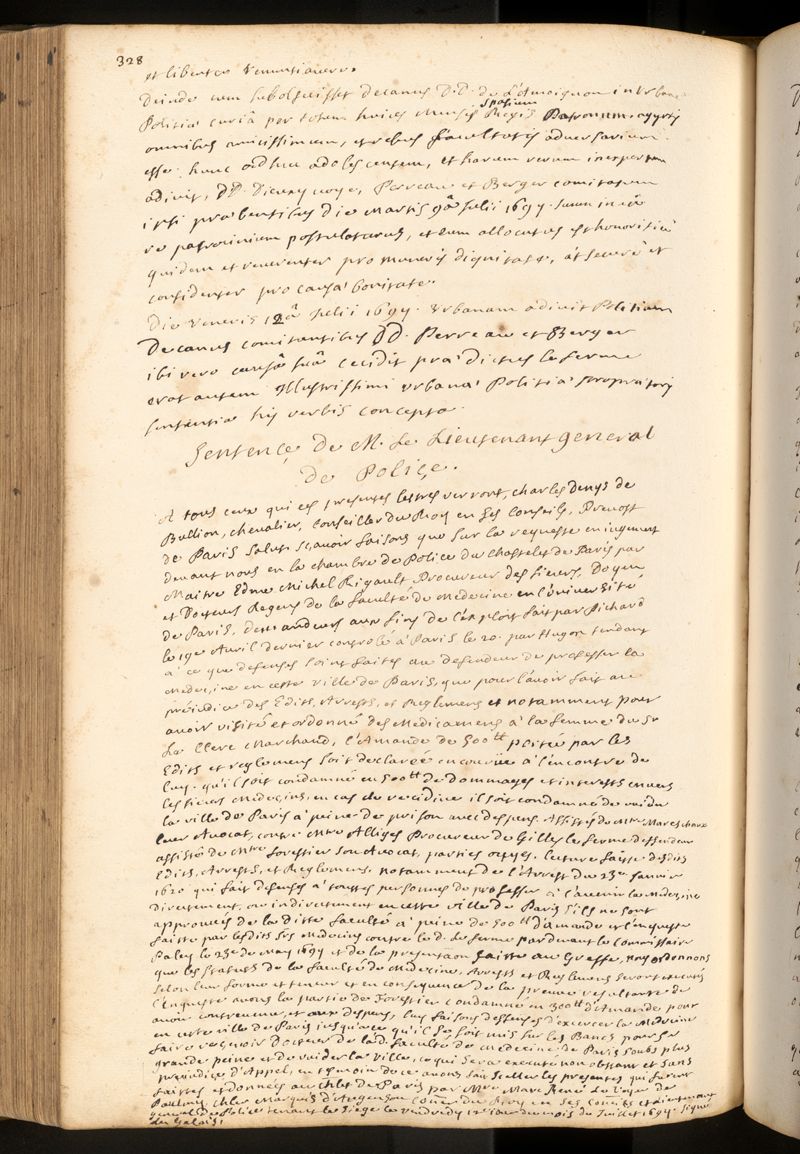 328
et libenter renuntiavere.
Deinde cum subolfecisset decanus D.D. de Lamoignon in Urbanæ
Politiæ curiâ per totum hunce mensis spatium Regis Patronum ægris
omnibus amicissimum, et rebus facultatis adversarium
esse: hunc adhuc adolescentem, et harum rerum inexpertum
adivit, DD. Dieuxyvoye, Perreau et Berger comitatum
ipsi præbentibus die Martis 9â Julii 1697. suum in eâ
re patrocinium postulaturus, et eum allocutus est honorificè
quidem et reverenter pro muneris dignitate, at severè et
confidenter pro causæ bonitate.
Die Veneris 12â Julii 1697. Urbanam adivit Politiam
Decanus comitantibus DD. Perreau et Berger
ibi vero causâ suâ cecidit prædictus le Ferme
erat autem Illustrissimi urbanæ Politiæ Propraetoris
sententia his verbis concepta.
Sentence de M. Le Lieutenant general
de Police.
A tous ceux qui ces presentes lettres verront, charles Denys de
Bullion, chevalier, Conseiller du Roy en ses Conseils, Prevost
de Paris salut. sçavoir faisons que sur la requeste en jugement
devant nous en la chambre de Police du Chastelet de Paris par
Maitre Edme Michel Rigault Procureur des sieurs, Doyen
et Docteurs Regens de la faculté de Medecine en l'université
de Paris, demandeurs aux fins de l'exploit fait par Richard
le 19e Avril dernier controlé à Paris le 20. par Hugon tendant
a ce que defenses soient faites au defendeur de professer la
medecine en cette ville de Paris, que pour l'avoir fait au
préjudice des Edits, Arrests, et Reglemens et notamment pour
avoir visité et ordonné des Medicamens à la femme du Sr
Le Clerc Marchand, l'Amande de 500tt portée par les
Edits et reglemens soit declarée encourüe à l'encontre de
luy. qu'il soit condamné en 500tt de dommages et interests envers
les sieurs Medecins, en cas de recidive il soit condamné de vuider
la ville de Paris à peine de prison avec despens. Assisté de Mtre Mareschaux
leur Avocat, contre Mtre Alliges Procureur de Gilles le ferme defendeur
assisté de Mtre forestier son Avocat, parties ouyes. lecture faitte desdits
Edits, Arrests, et Reglemens. notamment de l'Arrest du 23e Janvier
1620 qui fait defenses à touttes personnes de professer à l'avenir la Medecine
directement, ou indirectement en cette ville de Paris s'ils ne sont
approuvés de la ditte faculté à peine de 500tt d'amande et l'enqueste
faitte par lesdits Srs Medecins contre led. Le ferme pardevant le Commissaire
le 23e de May 1697 et de la presentaon faitte au Greffe, nous ordonnons
que les statuts de la faculté de Medecine, Arrests et Reglemens seront executés
selon leur forme et teneur et en consequence de la preuve resultante de
l'Enqueste avons la partie de Forestier condamné en 300tt d'Amande pour
avoir contrevenu, et aux despens, luy faisons deffenses d'exercer la Medecine
en cette ville de Paris jusqu'a ce qu'il se soit mis sur les Bancs pour se
faire recevoir Docteur de lad. faculté de medecine de Paris soubs plus
grande peine et de vuider la ville, ce qui sera executé non obstant et sans
prejudice d'Appel, en temoin de ce avons fait sceller les presentes qui furent
faittes et données au Chlet de Paris par Mre Marc René de Voyer de
Paulmy, chler Marquis d'Argenson Coner du Roy en ses Conseils et lieutenant
general de Police tenant le siege le vendredy 12e jour du mois de Juillet 1697. Signé